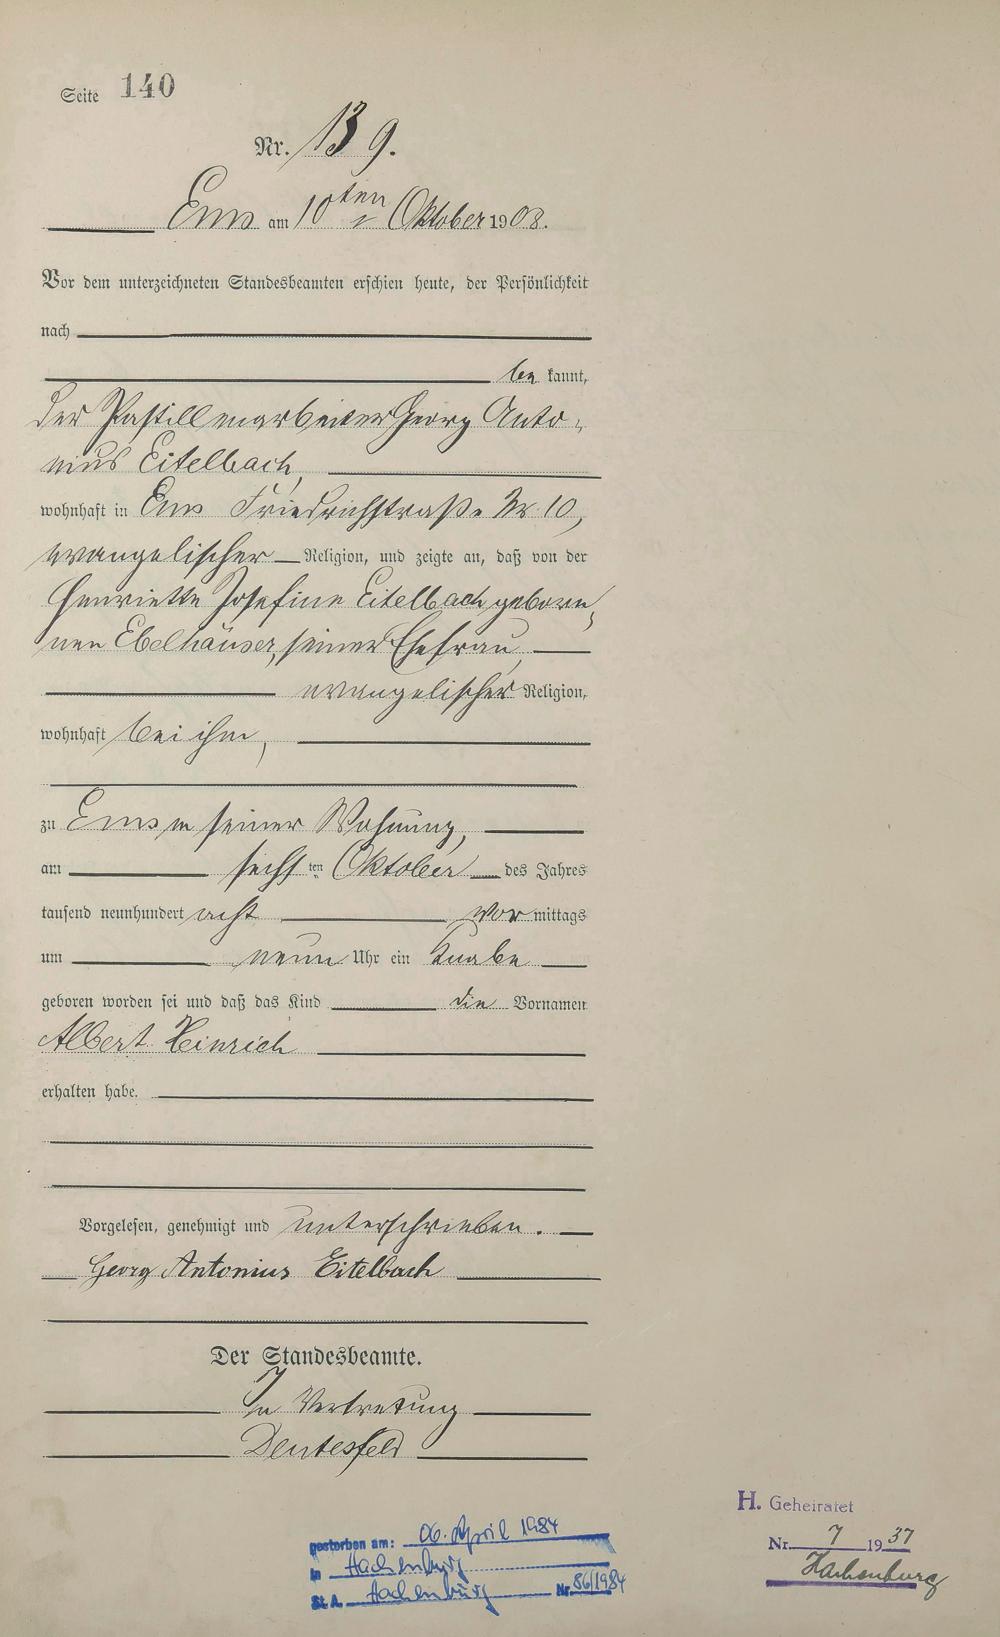 Seite 140
Nr. 139.
Ems am 10ten Oktober 1908.
Vor dem unterzeichneten Standesbeamten erschien heute, der Persönlichkeit
nach
be kannt,
der Pastillenarbeiter Georg Anto-
nius Eitelbach,
wohnhaft in Ems Friedrichstraße Nr. 10,
evangelischer Religion, und zeigte an, daß von der
Henriette Josefine Eitelbach gebore-
nen Ebelhäuser, seiner Ehefrau,
evangelischer Religion,
wohnhaft bei ihm,
zu Ems in seiner Wohnung,
am sechsten Oktober des Jahres
tausend neunhundert acht vor mittags
um neun Uhr ein Knabe
geboren worden sei und daß das Kind die Vornamen
Albert Heinrich
erhalten habe.
Vorgelesen, genehmigt und unterschrieben.
Georg Antonius Eitelbach
Der Standesbeamte.
In Vertretung
H. Geheiratet
Nr. 7 1937
Hachenburg
gestorben am: 06. April 1984
in Hachenburg
St. A. Hachenburg Nr. 86/1984